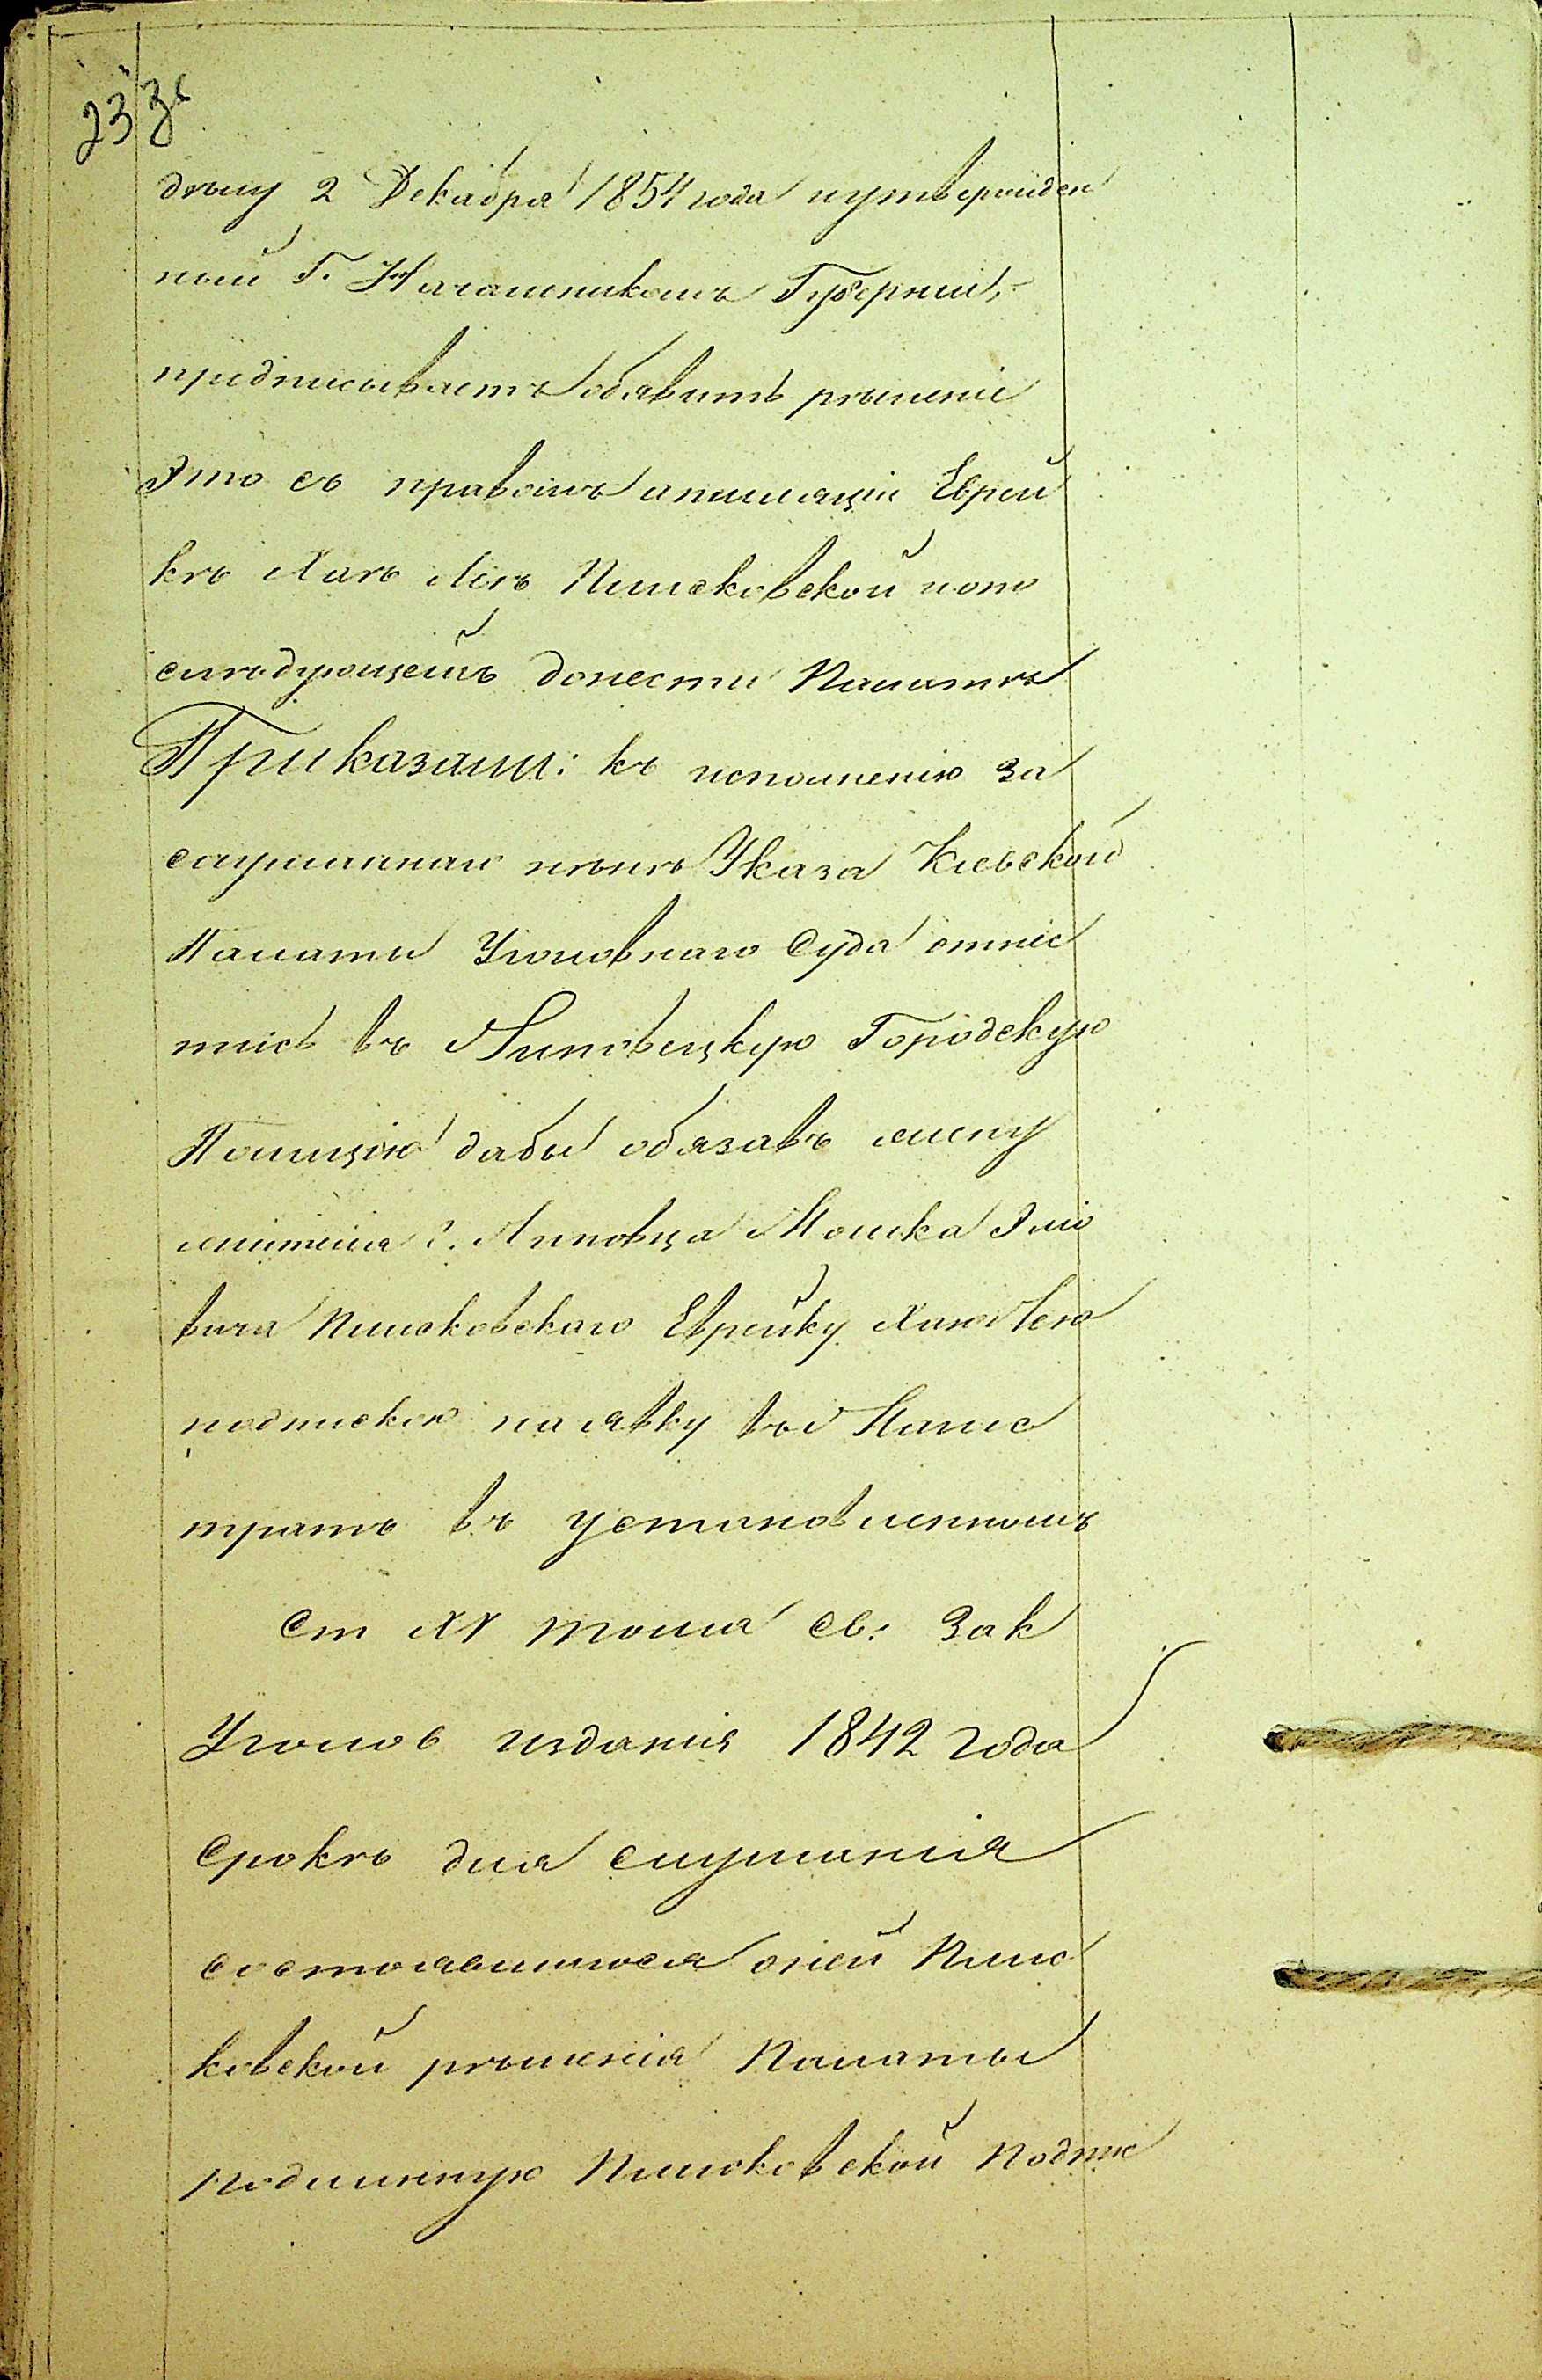 23 зв
дѣлу 2 Декабря 1854 года иутвержден
ный Г. Начальникомъ Губерніи,
предписываетъ обявить рѣшеніе
Это съ правомъ апеляціи Еврей
кѣ Хаѣ Леѣ Плисковской ипо
слѣдующемъ донести Палатѣ
Приказали: къ исполненію за
слушаннаго нынѣ Указа Кіевской
Палаты Уголовнаго Суда отнес
тись въ Липовецкую Городскую
Полицію дабы обязавъ жену
жителя г. Липовца Мошка Эліо
вича Плисковскаго Еврейку Хаю Лею
подпискою на явку въ Магис
тратъ въ установленномъ
ст XV тома Св: Зак
Уголов изданія 1842 года
срокѣ для слушанія
состоявшагося оней Плис
ковской рѣшенія Палаты
подлинную Плисковской Подпис